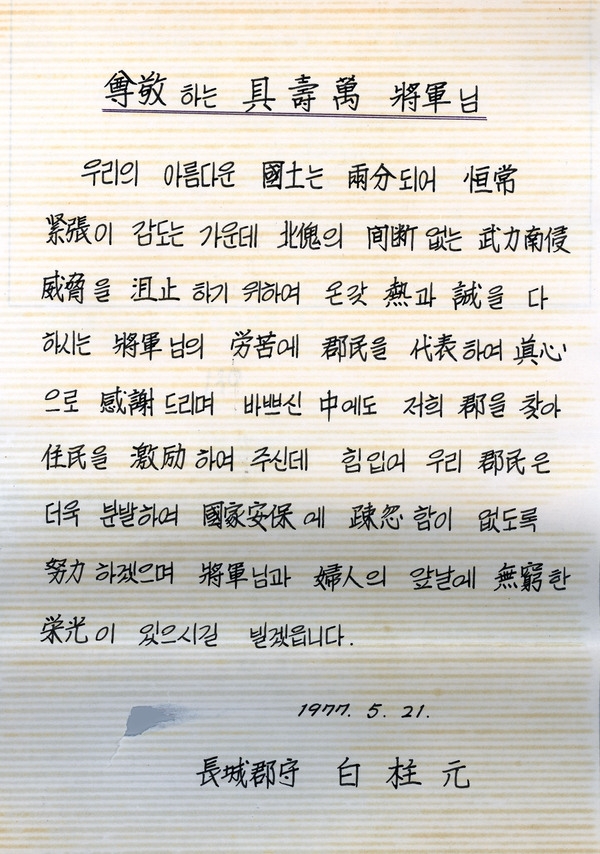 尊敬하는 具壽萬 將軍님
우리의 아름다운 國土는 兩分되어 恒常
緊張이 감도는 가운데 北傀의 间断없는 武力南侵
威脅을 沮止하기 위하여 온갖 熱과 誠을 다
하시는 將軍님의 労苦에 郡民을 代表하여 眞心
으로 感謝드리며 바쁘신 中에도 저희 郡을 찾아
住民을 激励하여 주신데 힘입어 우리 郡民은
더욱 분발하여 國家安保에 疎忽함이 없도록
努力하겠으며 將軍님과 婦人의 앞날에 無窮한
栄光이 있으시길 빌겠읍니다.
1977. 5. 21.
長城郡守 白 柱 元